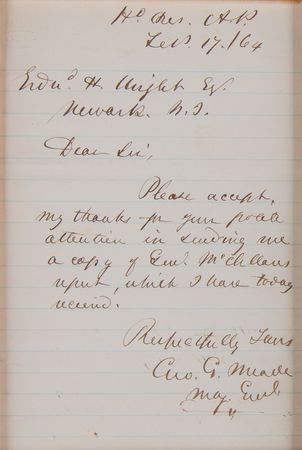 Hd Qrs. A.P.
Feb. 17./64
Edwd H. Wright Esq.
Newark. N.J.
Dear Sir,
Please accept,
my thanks for your polite
attention in sending me
a copy of Genl. McClellans
report, which I have today
received.
Respectfully Yours
Geo. G. Meade
Maj. Genl.